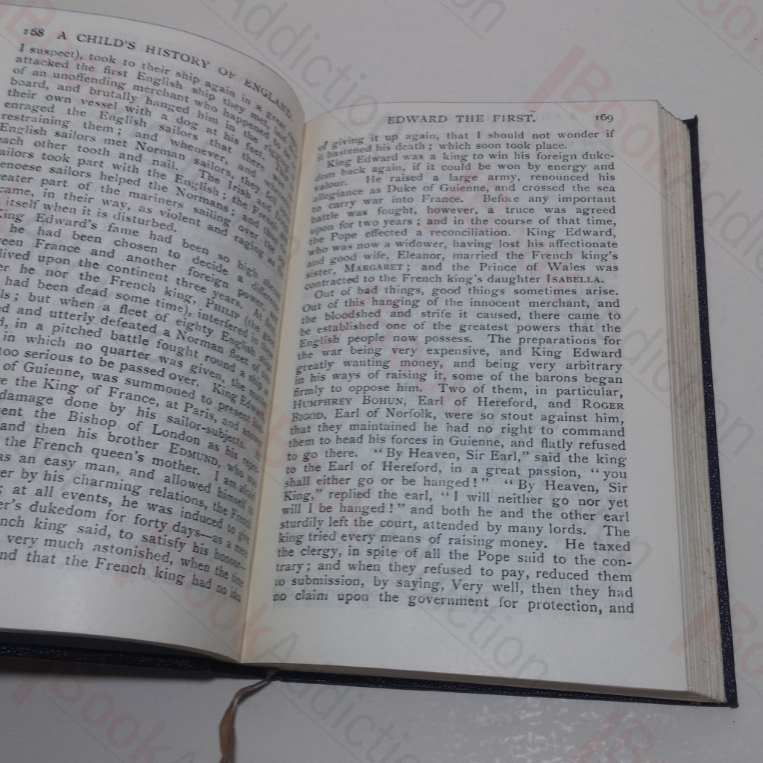 158 A CHILD'S HISTORY OF ENGLAND.
I suspect), took to their ship again in a great
attacked the first English ship they met,
of an unoffending merchant who happened to
board, and brutally hanged him in the rigging
their own vessel with a dog at his feet. This
enraged the English sailors that there
restraining them; and whenever, and
English sailors met Norman sailors, they fell
each other tooth and nail. The Irish and
sailors took part with the English; the French
Genoese sailors helped the Normans; and
greater part of the mariners sailing over the
came, in their way, as violent and raging as
itself when it is disturbed.
King Edward's fame had been so high
he had been chosen to decide a
between France and another foreign power
lived upon the continent three years. At
he nor the French king, PHILIP (the
had been dead some time), interfered in
; but when a fleet of eighty English
and utterly defeated a Norman fleet of
in a pitched battle fought round a ship
in which no quarter was given, the
too serious to be passed over. King Edward
of Guienne, was summoned to present
the King of France, at Paris, and answer
damage done by his sailor-subjects. At
sent the Bishop of London as his
and then his brother EDMUND, who was
the French queen's mother. I am afraid
as an easy man, and allowed himself to
by his charming relations, the French
; at all events, he was induced to give
dukedom for forty days—as a mere
French king said, to satisfy his honour
very much astonished, when the time
and that the French king had no idea
EDWARD THE FIRST. 169
of giving it up again, that I should not wonder if
it hastened his death; which soon took place.
King Edward was a king to win his foreign duke-
dom back again, if it could be won by energy and
valour. He raised a large army, renounced his
allegiance as Duke of Guienne, and crossed the sea
to carry war into France. Before any important
battle was fought, however, a truce was agreed
upon for two years; and in the course of that time,
the Pope effected a reconciliation. King Edward,
who was now a widower, having lost his affectionate
and good wife, Eleanor, married the French king's
sister, MARGARET; and the Prince of Wales was
contracted to the French king's daughter ISABELLA.
Out of bad things, good things sometimes arise.
Out of this hanging of the innocent merchant, and
the bloodshed and strife it caused, there came to
be established one of the greatest powers that the
English people now possess. The preparations for
the war being very expensive, and King Edward
greatly wanting money, and being very arbitrary
in his ways of raising it, some of the barons began
firmly to oppose him. Two of them, in particular,
HUMPHREY BOHUN, Earl of Hereford, and ROGER
BIGOD, Earl of Norfolk, were so stout against him,
that they maintained he had no right to command
them to head his forces in Guienne, and flatly refused
to go there. "By Heaven, Sir Earl," said the king
to the Earl of Hereford, in a great passion, "you
shall either go or be hanged!" "By Heaven, Sir
King," replied the earl, "I will neither go nor yet
will I be hanged!" and both he and the other earl
sturdily left the court, attended by many lords. The
king tried every means of raising money. He taxed
the clergy, in spite of all the Pope said to the con-
trary; and when they refused to pay, reduced them
to submission, by saying, Very well, then they had
no claim upon the government for protection, and
BookAddiction